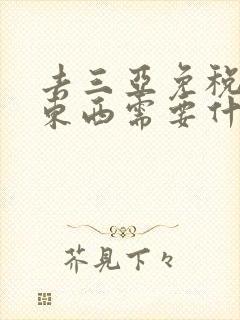 去三亚免税
东西需要什
芥見下々